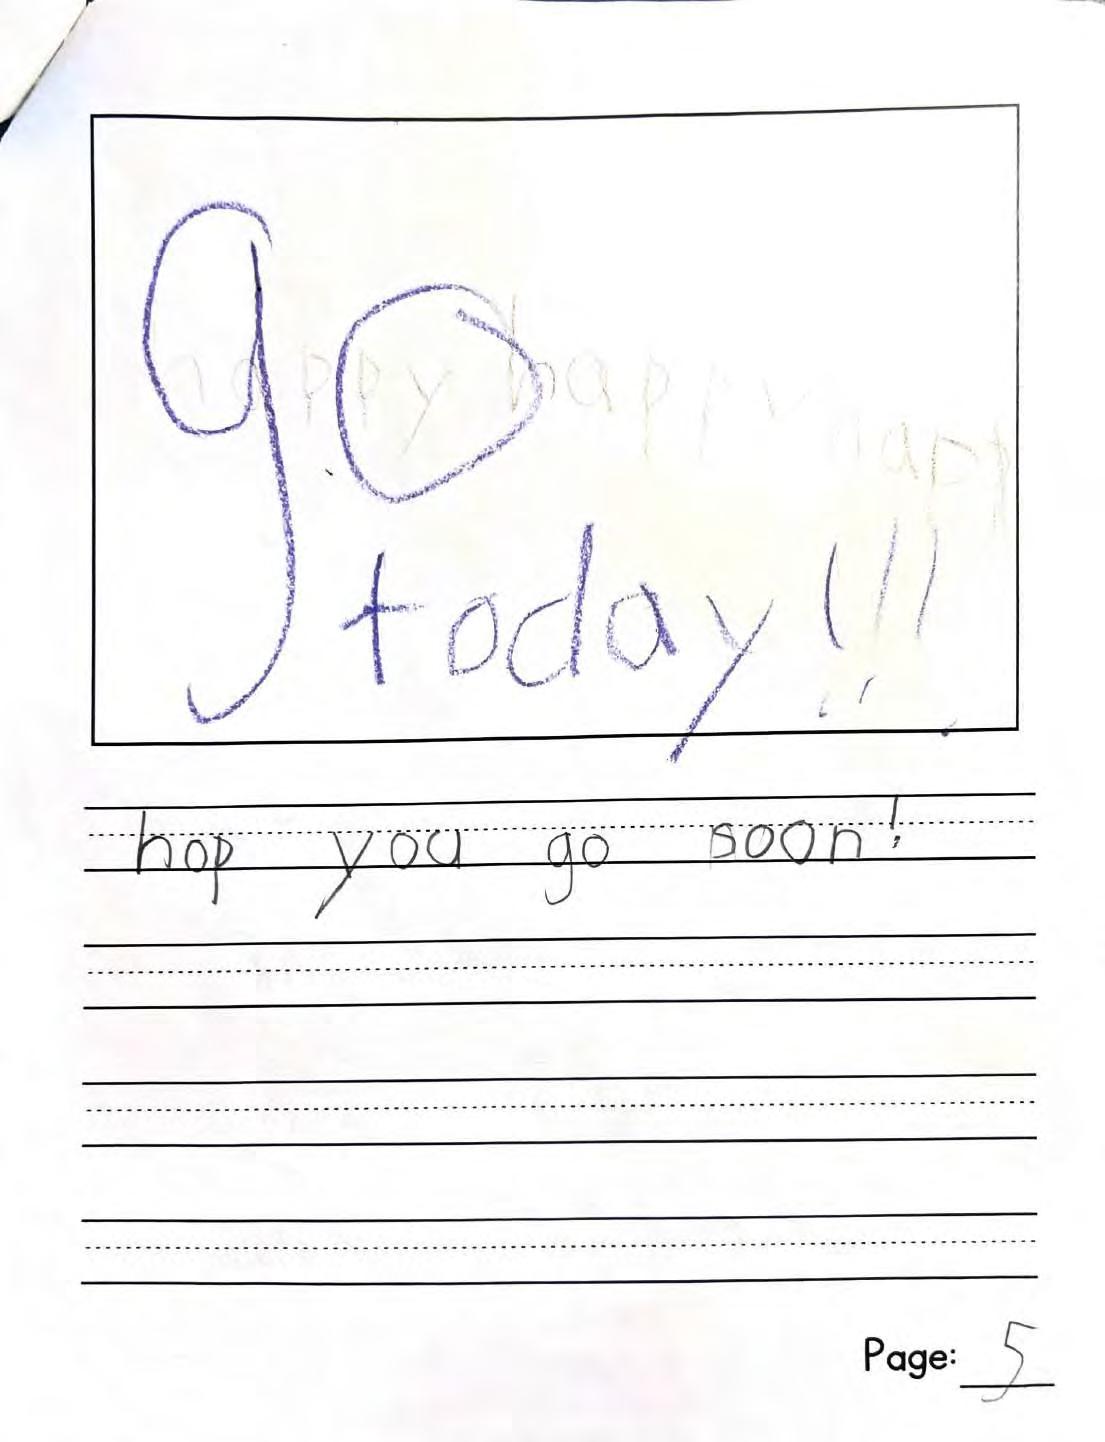 go
happy happy happ
today!!!
hop you go soon!
Page: 5